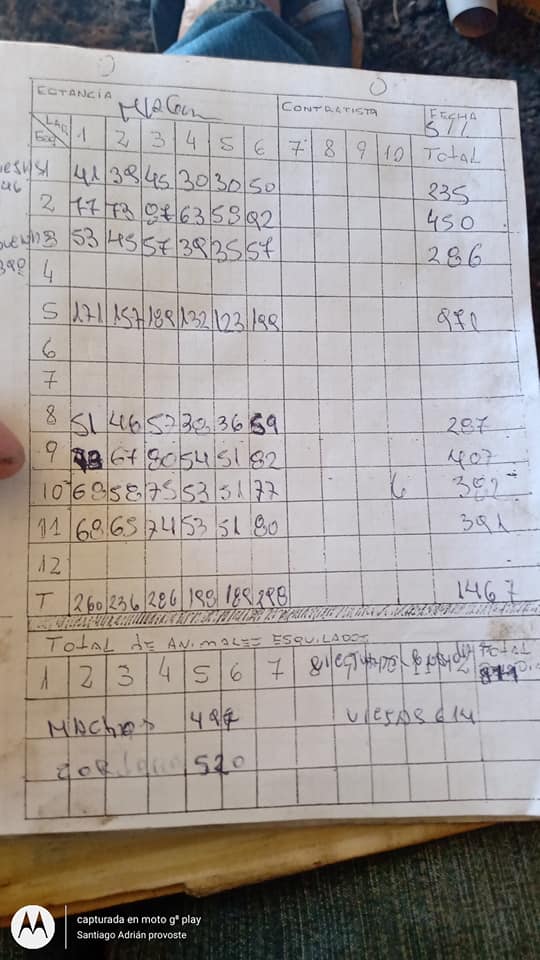 ESTANCIA
CONTRATISTA FECHA
5/1
LAR. 1 2 3 4 5 6 7 8 9 10 TOTAL
1 41 39 45 30 30 50 235
2 77 73 87 63 58 92 450
3 53 45 57 39 35 57 286
4
5 171 157 189 132 123 199 971
6
7
8 51 46 57 38 36 59 287
9 67 80 54 51 82 407
10 68 58 75 53 51 77 6 382
11 68 65 74 53 51 80 391
12
T 260 236 286 198 189 298 1467
TOTAL DE ANIMALES ESQUILADOS
1 2 3 4 5 6 7 8 TOTAL
MACHOS 497 VIEJAS 614
520
capturada en moto g⁸ play
Santiago Adrián provoste